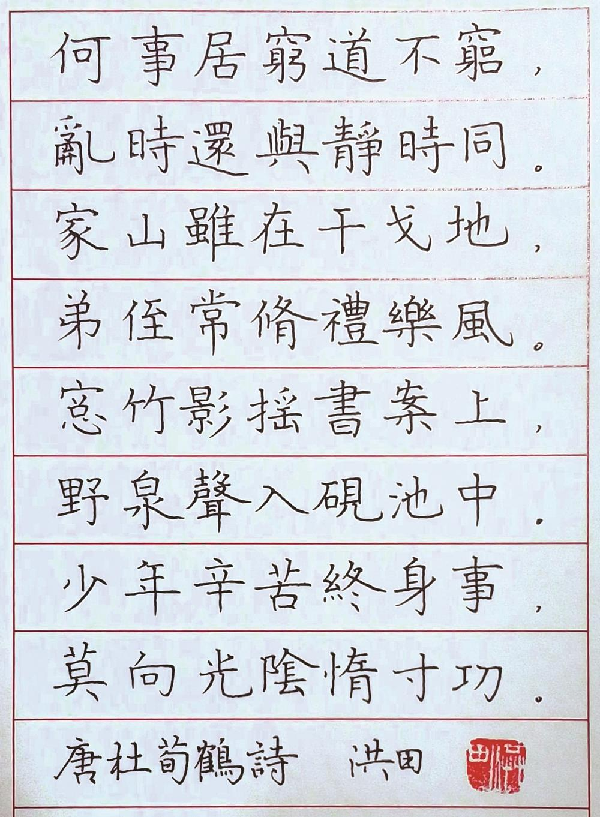 何事居窮道不窮，
亂時還與靜時同。
家山雖在干戈地，
弟侄常脩禮樂風。
窓竹影揺書案上，
野泉聲入硯池中．
少年辛苦終身事，
莫向光陰惰寸功．
唐杜荀鶴詩 洪田